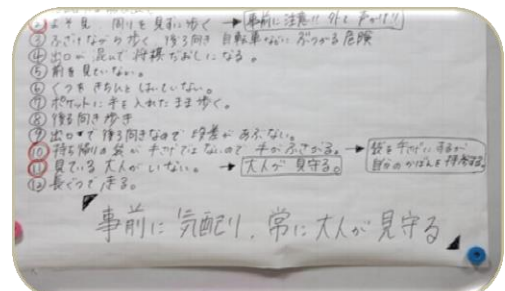 ② よそ見 周りを見ずに歩く → 事前に注意!! 外で声かけ!!
③ ふざけながら歩く 後ろ向き 自転車などにぶつかる危険
④ 出口が混んで将棋だおしになる。
⑤ 前を見ていない。
⑥ くつをきちんとはいていない。
⑦ ポケットに手を入れたまま歩く。
⑧ 後ろ向き歩き
⑨ 出口まで後ろ向きなので段差があぶない。
⑩ 持ち帰りの袋が手さげではないので手がふさがる。→ 袋を手さげにするか 自分のかばんを持参する。
⑪ 見ている大人がいない。→ 大人が見守る。
⑫ 長ぐつで走る。
事前に気配り、常に大人が見守る